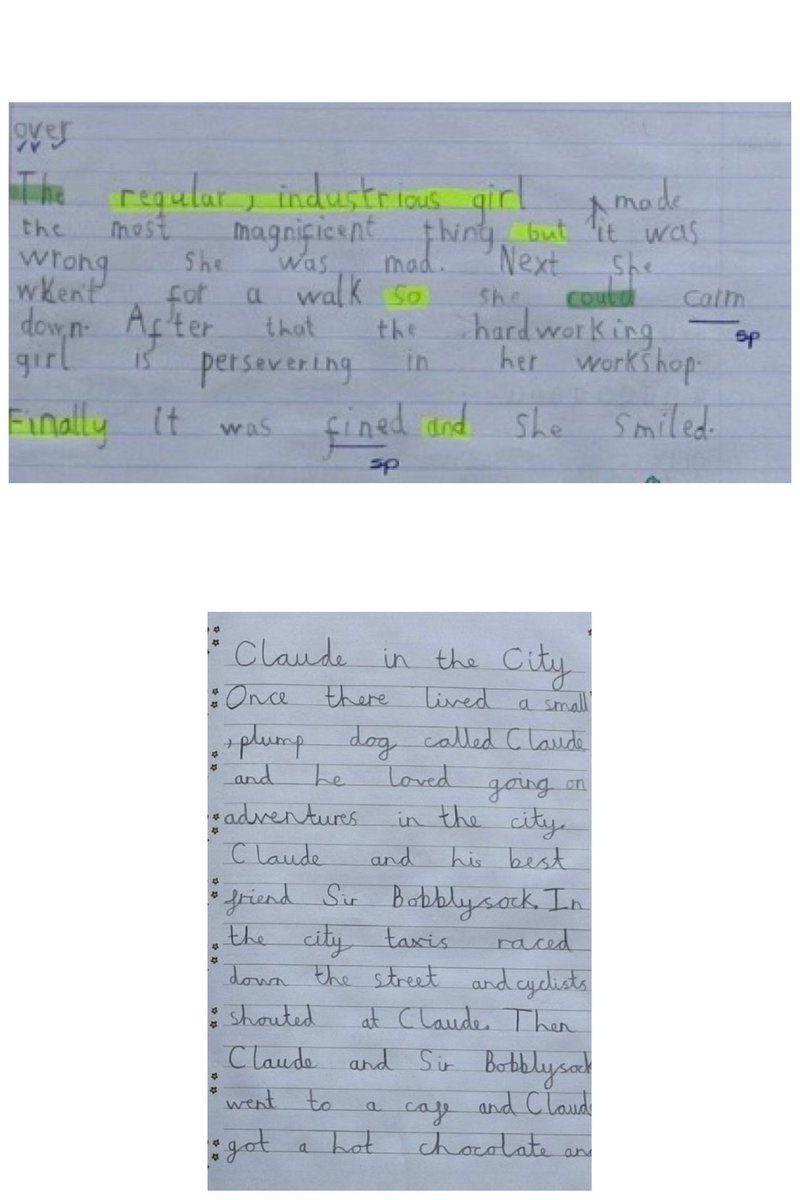 over
The regular, industrious girl made
the most magnificent thing but it was
wrong she was mad. Next she
went for a walk so she could carm
sp
down. After that the hardworking
girl is persevering in her workshop.
Finally it was fined and she smiled.
sp
Claude in the City
Once there lived a small
, plump dog called Claude
and he loved going on
adventures in the city.
Claude and his best
friend Sir Bobblysock. In
the city taxis raced
down the street and cyclists
shouted at Claude. Then
Claude and Sir Bobblysock
went to a cafe and Claud
got a hot chocolate an